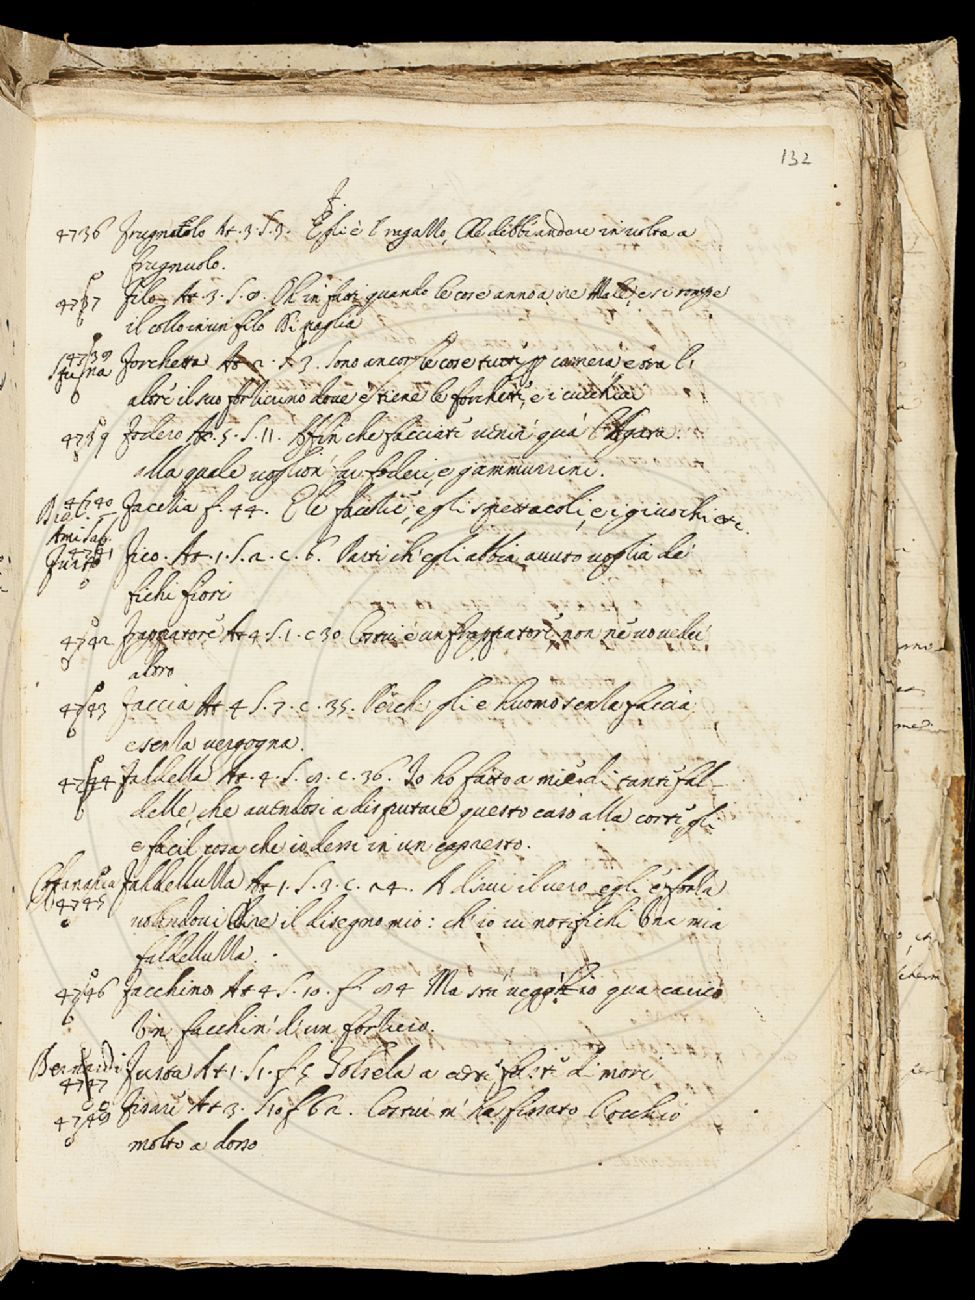 132
F.
4736 Frugnolo At. 3. S. 3. Egli è l ragallo, che debbi andare in volta a
frugnuolo.
4737 filo At. 3. S. 8. Oh in fatti quando le cose anno a ire Male, e si rompe
il collo in un filo Di paglia
4738 Forchetta At. 2. S. 3. sono ancor le cose tutte camera e tra l'
altre il suo forlierino dove e tiene le forchette, e i cucchiai
4739 Fodero At. 5. S. 11. Affin che facciate venir quà l'Agata.
alla quale voglion far foderi, e gammurrini.
4740 Facelia f. 44. E le facelie, e gli spettacoli, e i giuochi etc.
4741 Fico. At. 1. S. 2. c. 6. Vatti ch'egli abbia avuto voglia de
fichi fiori
4742 Frappatore At 4 S. 1. c 30 Costui è un frappatore, non ne vo veder
altro
4743 Faccia At. 4 S. 7. c. 35. Perch' gli e huomo senla faccia,
e senla vergogna.
4744 Faldella At. 4. S. 8. c. 36. Io ho fatto a miei di tante fal-
delle, che avendosi a disputare questo caso alla corte gli
e facil cosa che io dessi in un capresto.
4745 Faldellulla At 1. S. 3. c. 24. A dirne il vero egli è forla
volendovi dire il disegno mio: ch' io vi notifichi Una mia
faldellulla.
4746 Facchino At 4 S. 10. f. 84 Ma stà veggh'io qua carico
Un facchin' di un forliero.
Bernardi
4747 At 1. S1. f 5 a di more
At 3. S10 f 62. Costui m' ha ficcato l'occhio
molto a dosso